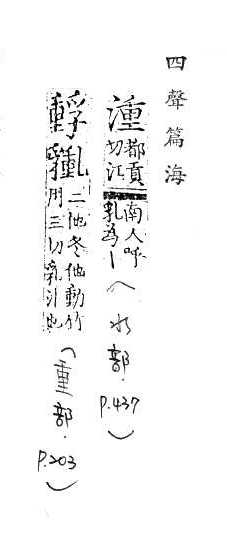 四聲篇海
湩都貢切江南人呼乳為丨(水部.P.437)
二他冬他動竹用三切乳汁也(重部.P.203)